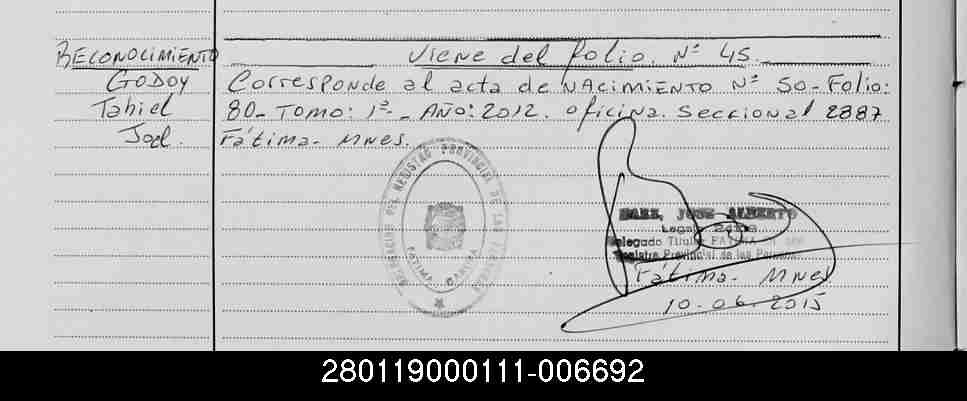 RECONOCIMIENTO
GODOY
Tahiel
Joel.
Viene del folio. Nº 45.
Corresponde al acta de NACIMIENTO Nº 50-Folio:
80-TOMO: 1º-. AÑO: 2012. oficina. Seccional 2887
Fátima- MNES.
DELEGACION DEL REGISTRO PROVINCIAL DE LAS PERSONAS
FATIMA
JOSE ALBERTO
Delegado Titular FATIMA
Registro Provincial de las Personas
Fátima- MNES.
10-06-2015
280119000111-006692